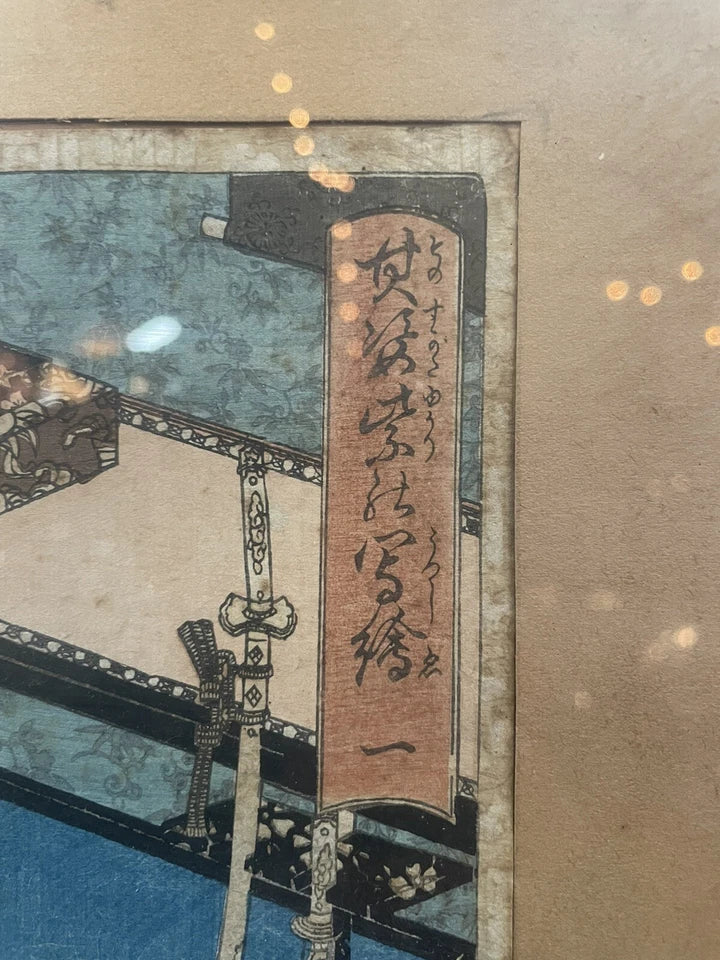 其姿紫の寫繪 一
その すがた ゆかり うつし ゑ